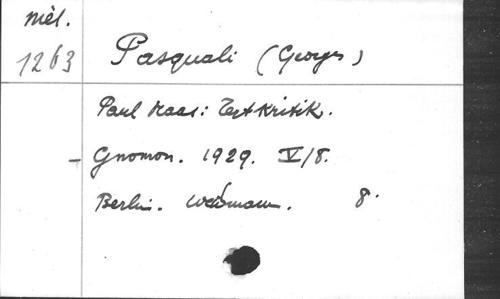 Mèl.
1263
Pasquali (Georges)
Paul Maas: Textkritik.
- Gnomon. 1929. V/8.
Berlin. Weidmann. 8°